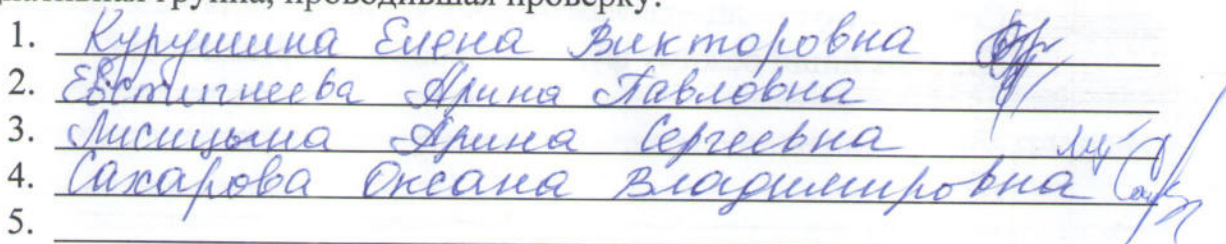 группа, проводившая проверку:
1. Курушина Елена Викторовна
2. Евстигнеева Арина Павловна
3. Лисицына Арина Сергеевна
4. Сахарова Оксана Владимировна
5.